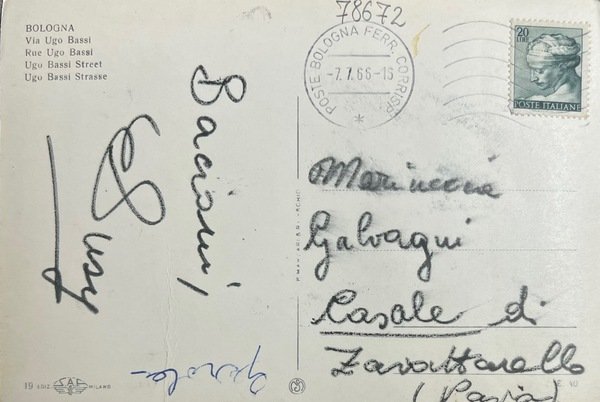 BOLOGNA
Via Ugo Bassi
Rue Ugo Bassi
Ugo Bassi Street
Ugo Bassi Strasse
78672
POSTE BOLOGNA FERR. CORRISP.
-7.7.66-16
20
LIRE
POSTE ITALIANE
Bacioni,
Susy
Galvagni
Casale di
Zavattarello
(Pavia)
19 EDIZ. SAF MILANO